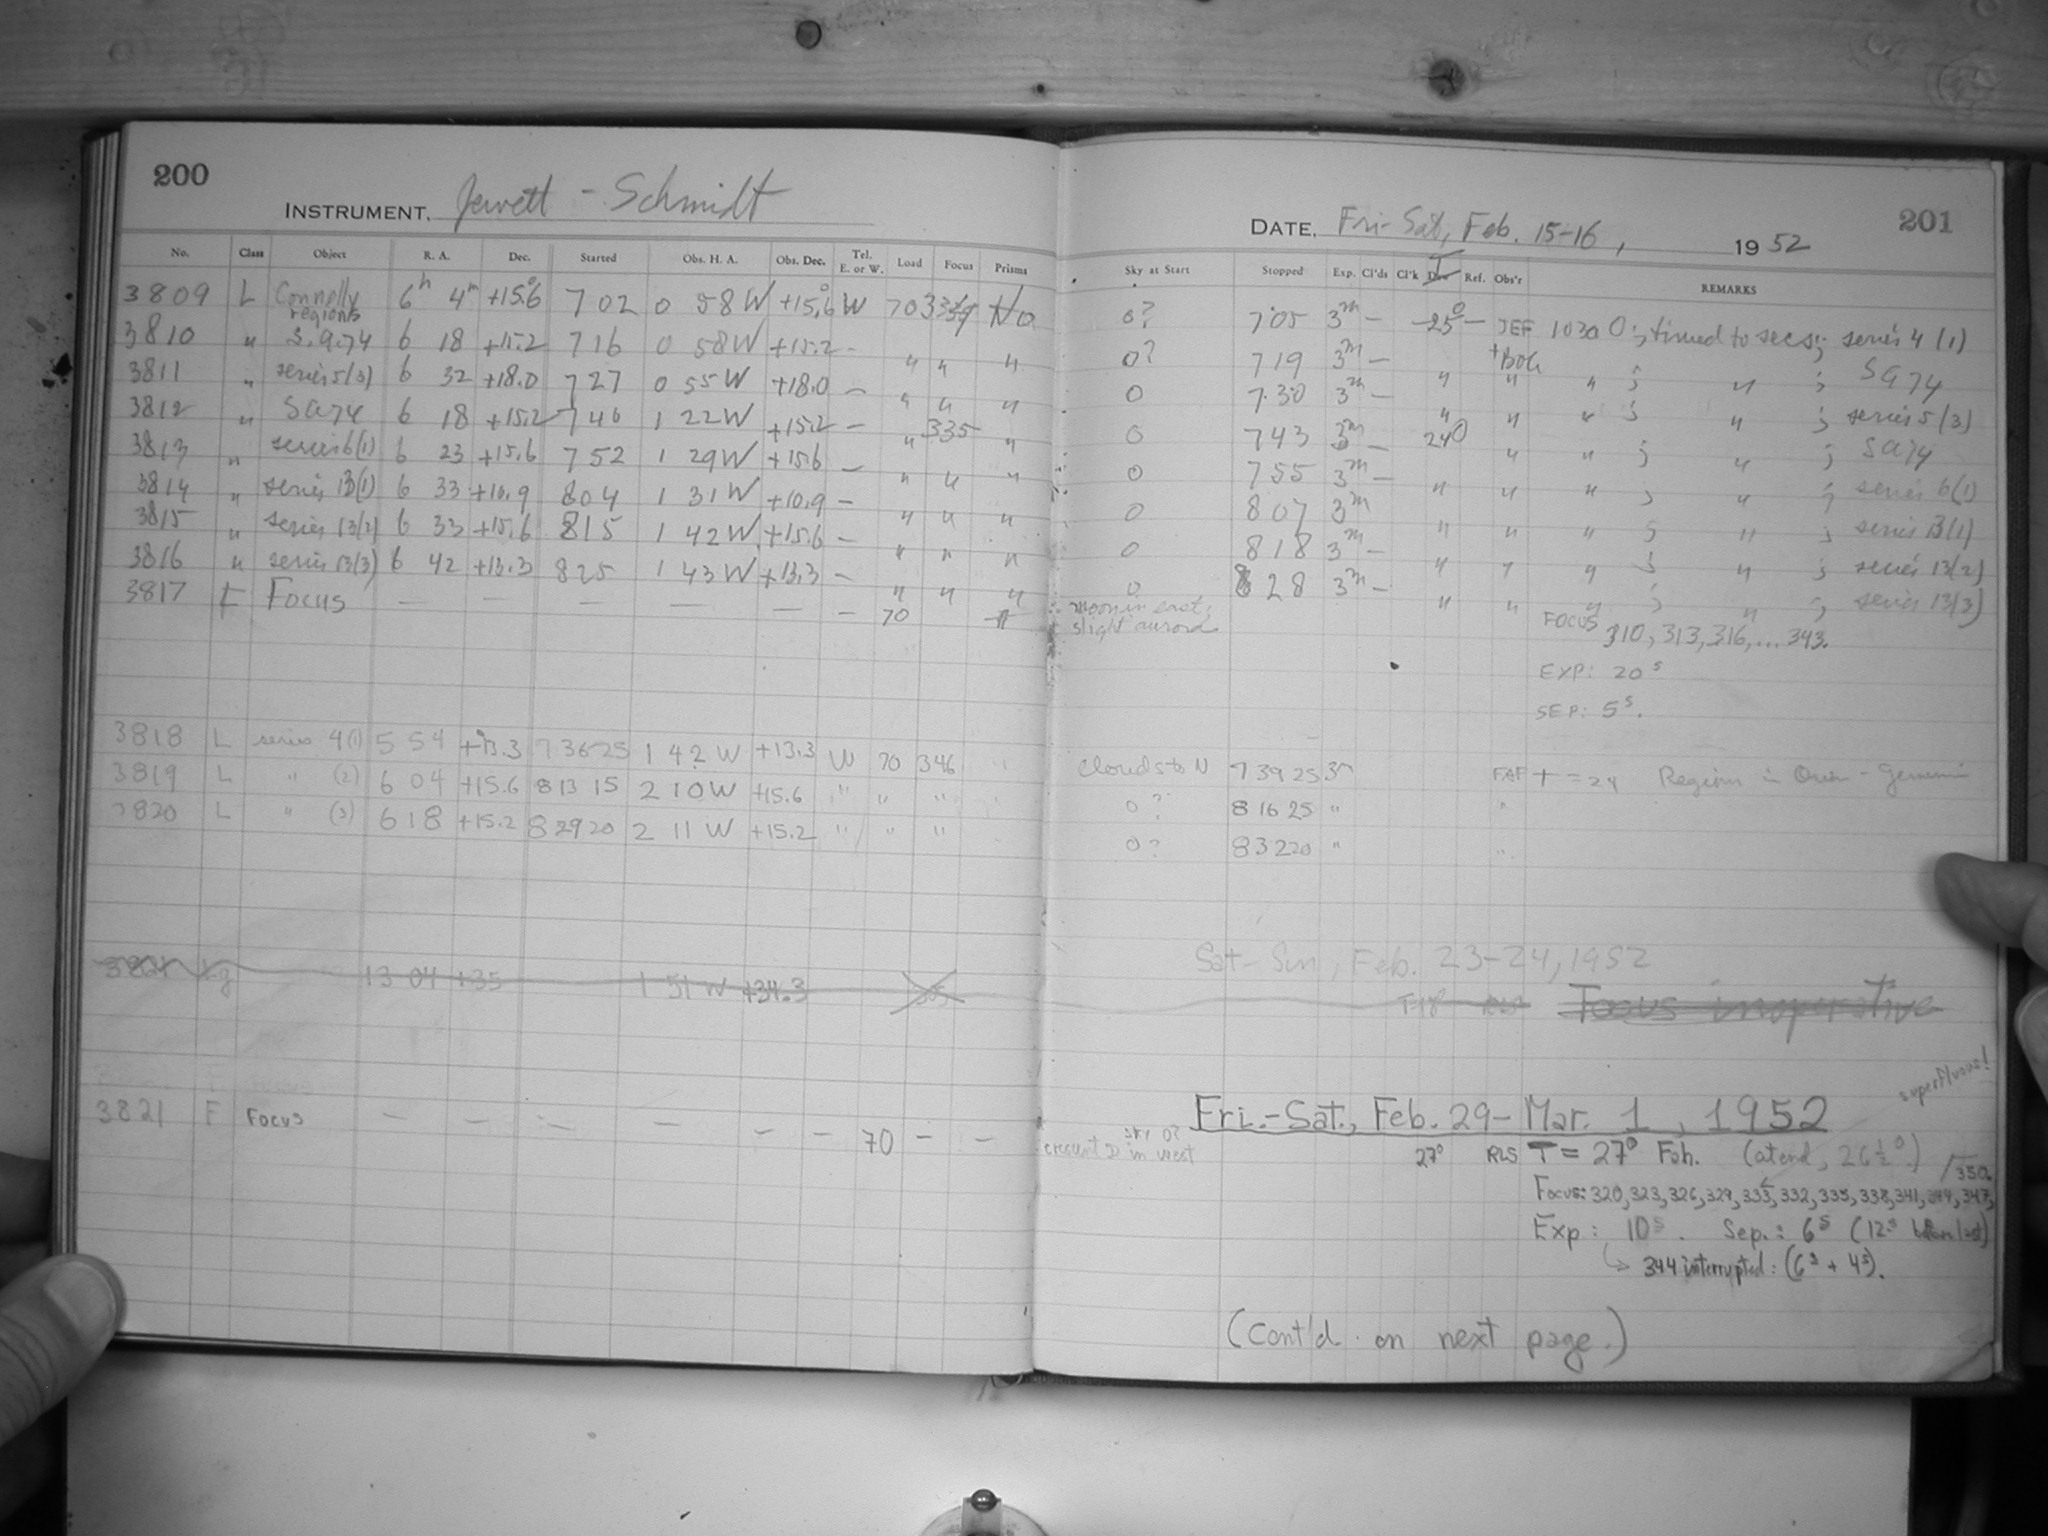 200
INSTRUMENT. Jewett - Schmidt
No. Class Object R. A. Dec. Started Obs. H. A. Obs. Dec. Tel. E. or W. Load Focus Prisms
3809 L Connolly regions 6h 4m +15.6° 7 02 0 58 W +15.6° W 70 No
3810 " S.A.74 6 18 +15.2 7 16 0 58 W +15.2 - " " "
3811 " series 5(3) 6 32 +18.0 7 27 0 55 W +18.0 - " " "
3812 " SA74 6 18 +15.2 7 40 1 22 W +15.2 - " 335 "
3813 " series 6(1) 6 23 +15.6 7 52 1 29 W +15.6 - " " "
3814 " series 13(1) 6 33 +10.9 8 04 1 31 W +10.9 - " " "
3815 " series 13(2) 6 33 +15.6 8 15 1 42 W +15.6 - " " "
3816 " series 13(3) 6 42 +13.3 8 25 1 43 W +13.3 - " " "
3817 F Focus — — — — — - 70 "
3818 L series 4(1) 5 54 +13.3 7 36 25 1 42 W +13.3 W 70 346 "
3819 L " (2) 6 04 +15.6 8 13 15 2 10 W +15.6 " " "
3820 L " (3) 6 18 +15.2 8 29 20 2 11 W +15.2 " " "
3821 13 04 +35 1 51 W +34.3
3821 F Focus - - - - - - 70 - -
201
DATE. Fri-Sat, Feb. 15-16, 1952
Sky at Start Stopped Exp. Cl'ds Cl'k T Ref. Obs'r REMARKS
0? 7 05 3m - 25° - JEF 103a O; timed to secs; series 4 (1)
0? 7 19 3m - " +BOG " ; " ; SA 74
0 7 30 3m - " " " ; " ; series 5(3)
0 7 43 3m - 24° " " ; " ; SA74
0 7 55 3m - " " " ; " ; series 6(1)
0 8 07 3m " " " ; " ; series 13(1)
0 8 18 3m - " " " ; " ; series 13(2)
0 8 28 3m - " " " ; " ; series 13(3)
moon in east; slight aurora FOCUS 310, 313, 316, ... 343.
EXP: 20s
SEP: 5s.
Clouds to N 7 39 25 3m FAF T = 24 Regions in Orion - Gemini
0? 8 16 25 " "
0? 8 32 20 " "
Sat-Sun, Feb. 23-24, 1952
Focus inoperative
superfluous!
Fri.-Sat., Feb. 29-Mar. 1, 1952
sky 0?
crescent in west 27° RLS T = 27° Fah. (at end, 26½°.)
/350.
Focus: 320, 323, 326, 329, 333, 332, 335, 338, 341, 344, 347,
Exp: 10s. Sep.: 6s (12s before last)
→ 344 interrupted: (6s + 4s).
(Cont'd. on next page.)